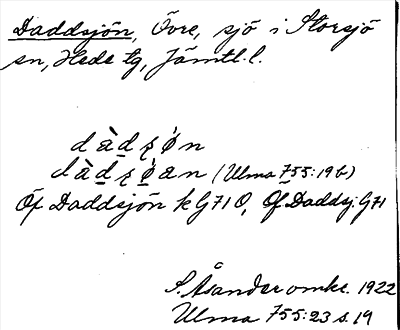 Daddsjön, Övre, sjö i Storsjö
sn, Hede tg, Jämtl. l.
dàdʂǿn
dàdʂǿan (Ulma 755:19b)
Öf Daddsjön k G71 O, Öf. Daddsj. G71
S. Åsander omkr. 1922
Ulma 755:23 s. 19